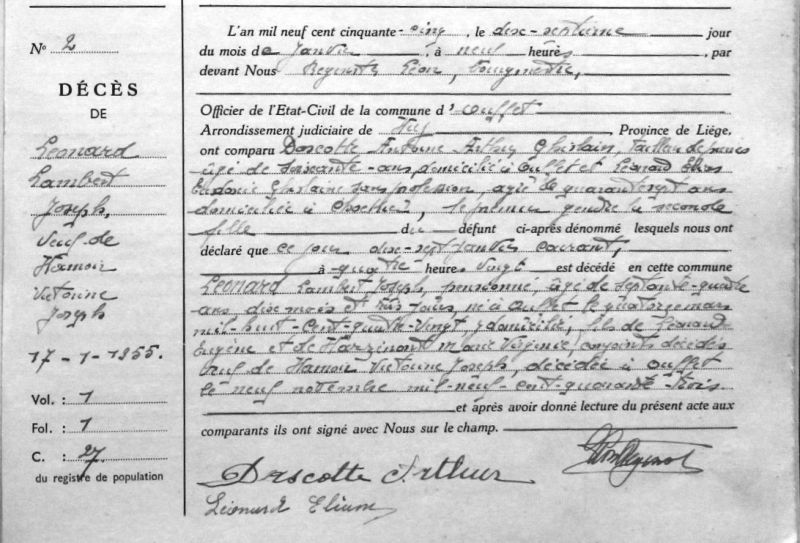 N° 2
DÉCÈS
DE
Leonard
Lambert
Joseph,
Veuf de
Hamoir
Victorine
Joseph
17 - 1 - 1955.
Vol. : 1
Fol. : 1
C. : 27
du registre de population
L'an mil neuf cent cinquante-cinq, le dix-septième jour
du mois de Janvier, à neuf heures, par
devant Nous Léon, bourgmestre,
Officier de l'Etat-Civil de la commune d'Ouffet
Arrondissement judiciaire de Huy, Province de Liège,
ont comparu Antoine Arthur Ghislain, tailleur de pierres
âgé de soixante-ans, domicilié à Ouffet et Léonard
Ghislaine sans profession, agée de quarante sept ans
domiciliée à, le premier gendre la seconde
fille du défunt ci-après dénommé lesquels nous ont
déclaré que ce jour dix-sept Janvier courant,
à quatre heures vingt est décédé en cette commune
Leonard Lambert Joseph, pensionné, âgé de septante-quatre
ans, dix mois et trois jours, né à Ouffet le quatorze mars
mil-huit-cent-quatre-vingt, y domicilié, fils de Léonard
Eugène et de Marie Virginie, conjoints décédés
veuf de Hamoir Victorine Joseph, décédée à Ouffet
le neuf novembre mil-neuf-cent-quarante-trois
et après avoir donné lecture du présent acte aux
comparants ils ont signé avec Nous sur le champ.
Arthur
Léonard